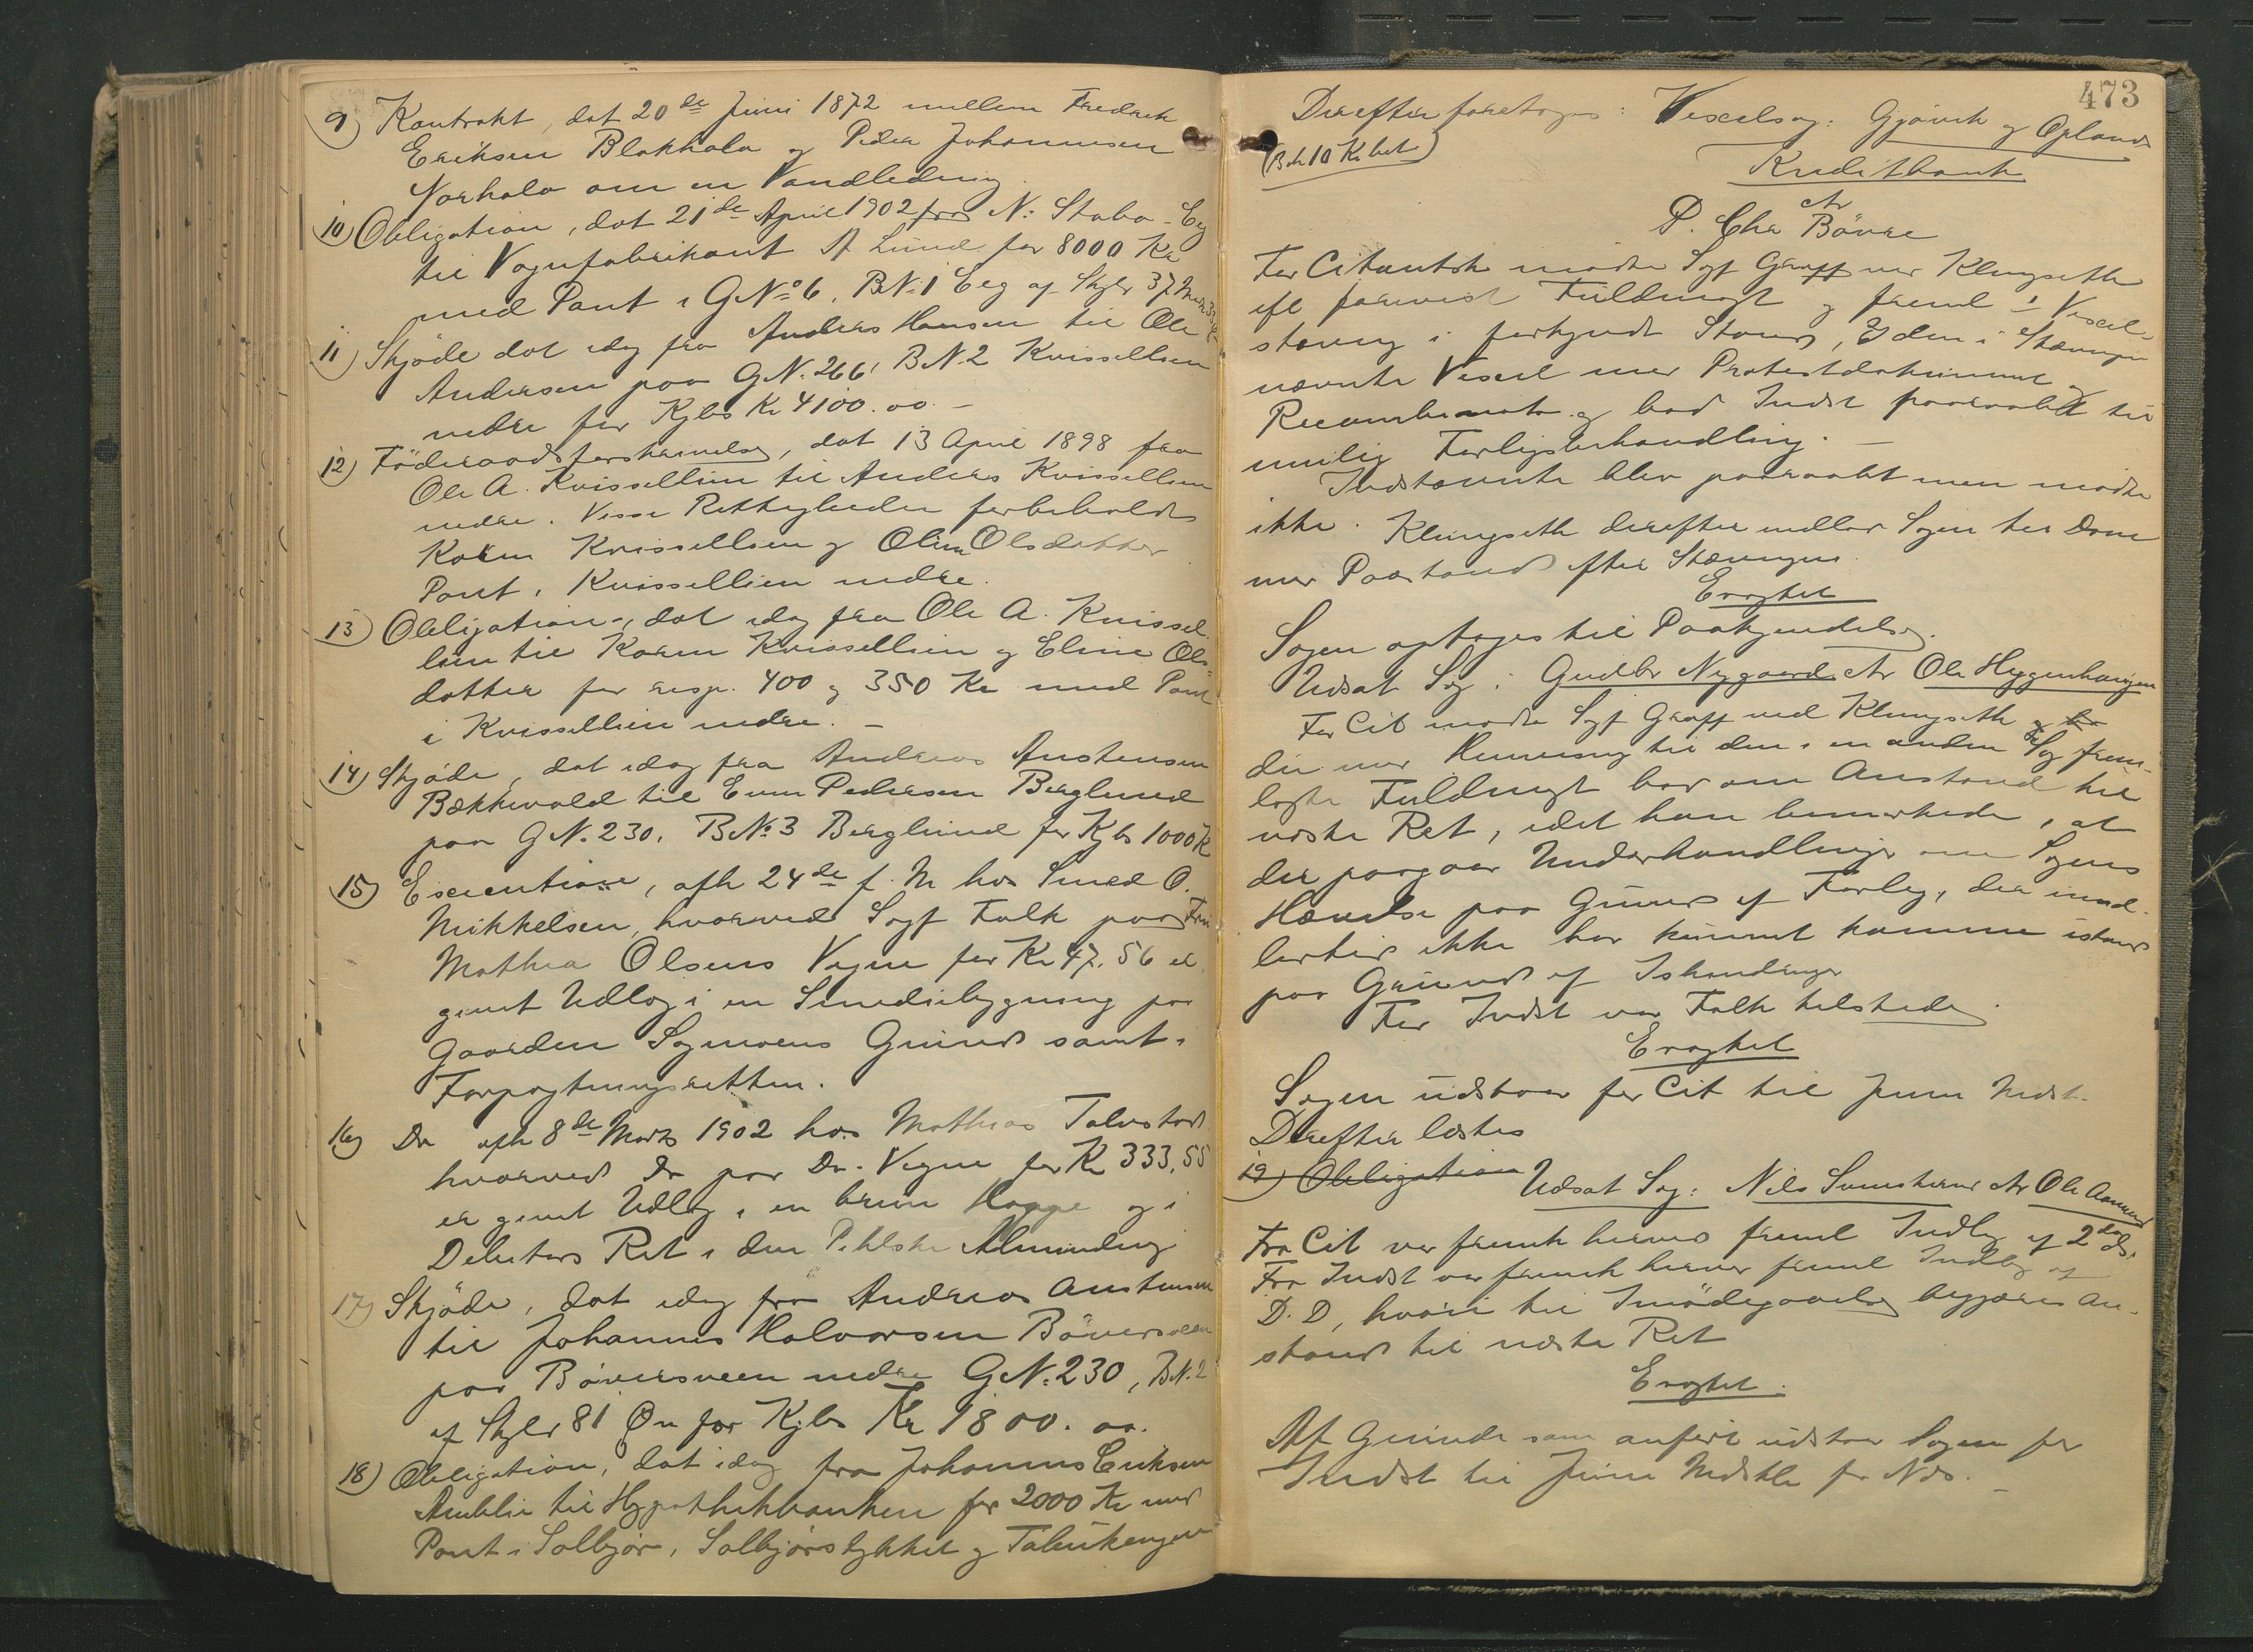 9) Kontrakt, dat 20de Juni 1872 mellem Fredrik
Eriksen Blakhala og Peder Johannesen
Norhala om en Vandledning
10) Obligation, dat 21de April 1902 fra N: Stabo-Eeg
til Vognfabrikant A Lund for 8000 Kr
med Pant i GNo 6, BN:1 Eeg af Skyld 37 Mark
11) Skjöde dat idag fra Anders Hansen til Ole
Andersen paa GN. 266, BN.2 Kvissellien
nedre for Kjbs Kr 4100.00.-
12) Föderaadsforskrivelse, dat 13 April 1898 fra
Ole A. Kvissellien til Anders Kvissellien
nedre. Visse Rettigheder forbeholdt
Karen Kvissellien og Oline Olsdatter
Pant i Kvissellien nedre.
13) Obligation, dat idag fra Ole A. Kvissel-
lien til Karen Kvissellien og Eline Ols-
datter for resp. 400 og 350 Kr med Pant
i Kvissellien nedre. -
14) Skjöde, dat idag fra Andreas Austensen
Bækkevold til Even Pedersen Berglund
paa GN. 230, BNo 3 Berglund for Kjbs 1000 Kr
15) Execution, afh 24de f. M hos Smed O.
Mikkelsen, hvorved Sagf Falk paa Fru
Mathea Olsens Vegne for Kr 47.56 er
givet Udlæg i en Smediebygning paa
Gaarden Sogmoens Grund samt i
Forpagtningsretten.
16) Do afh 8de Marts 1902 hos Mathias Talestad
hvorved Do paa Do. Vegne for Kr 333,55
er givet Udlæg i en brun Hoppe og i
Debitors Ret i den Pihlske Alminding
17) Skjöde, dat idag fra Andreas Austensen
til Johannes Halvorsen Böversveen
paa Böversveen nedre GN:230, BN.2
af Skyld 81 Öre for Kjbs Kr 1800.00.
18) Obligation, dat idag fra Johannes Eriksen
Amblie til Hypothekbanken for 2000 Kr med
Pant i Solbjör, Solbjörstykket og
473
Derefter foretoges: Vexelsag: Gjövik og Oplands
(Bet 10 Kr bet) Kreditbank
ctr
P. Chr Bövre
For Citantsk mödte Sagf Graff ved Klingseth
efl forevist Fuldmagt og freml 1 Vexel-
stævning i forkyndt Stand, 2 den i Stævningen
nævnte Vexel med Protestdokument og
Recambienota og bad Indst paaraabt til
mulig Forligsbehandling. -
Indstævnte blev paaraabt men mödte
ikke. Klingseth derefter indlod Sagen til Dom
med Paastand efter Stævningen.
Eragtet
Sagen optages til Paakjendelse.
Udsat Sag: Gudbr Nygaard ctr Ole Hyggenhaugen
For Cit mödte Sagf Graff ved Klingseth
der med Henvisning til den i en anden Sag frem-
lagte Fuldmagt bad om Anstand til
næste Ret, idet han bemærkede, at
der paagaar Underhandlinger om Sagens
Hævelse paa Grund af Forlig, der imid-
lertid ikke har kunnet komme istand
paa Grund af
For Indst var Falk tilstede.
Eragtet
Sagen udstaar for Cit til Juni Mdst.
Derefter læstes
19) Obligation
Udsat Sag: Nils Svensherud ctr Ole
Fra Cit var fremk herved freml Indlæg af 2den ds.
Fra Indst var fremk herved freml Indlæg af
D. D, hvori til Imödegaaelse begjæres An-
stand til næste Ret
Eragtet.
Af Grunde som anfört udstaar Sagen for
Indst til Juni Mdsthi for Nds. -